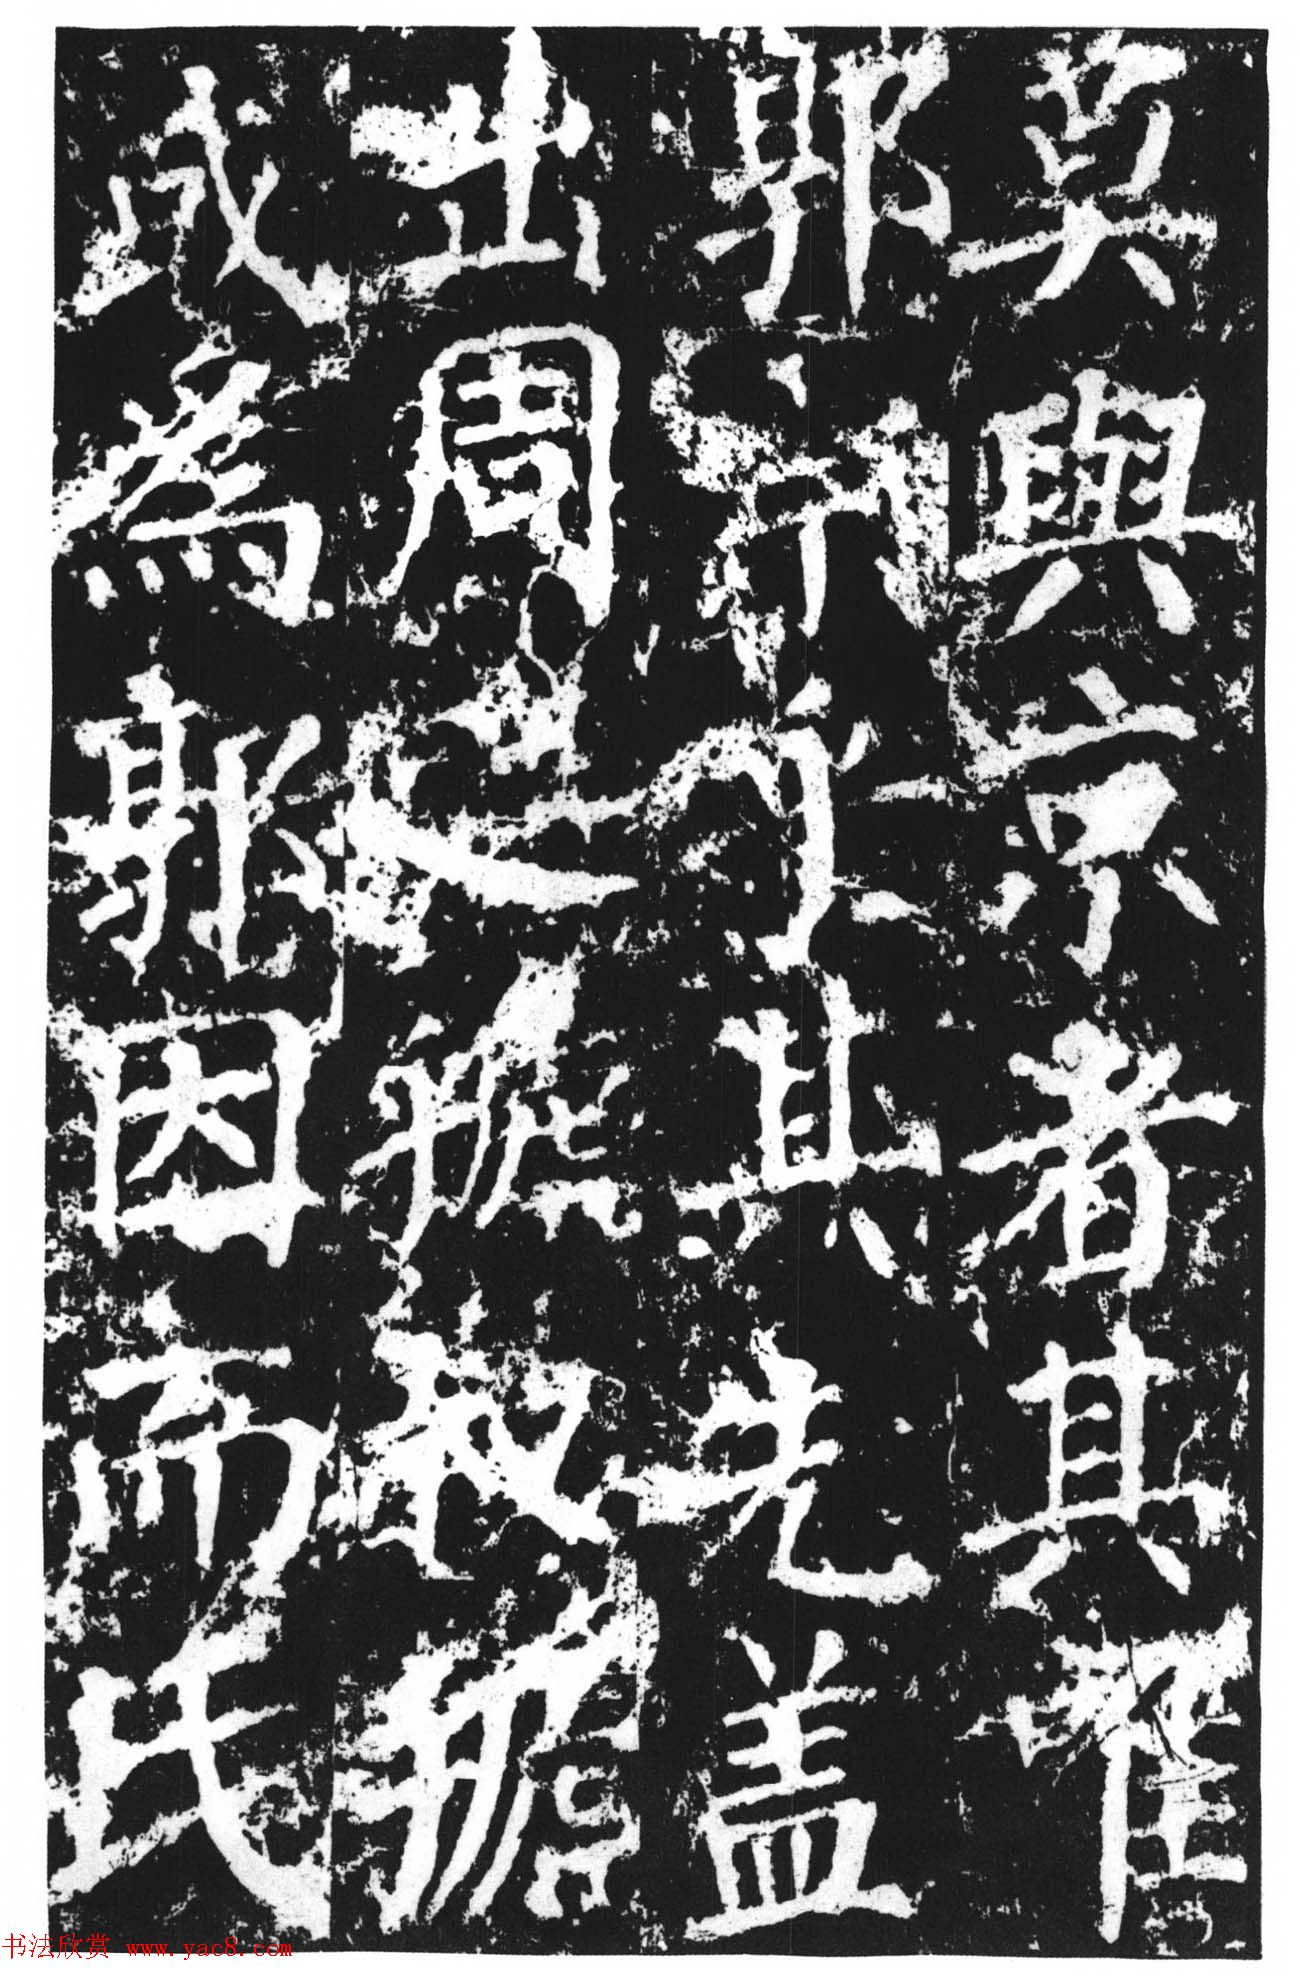 莫與京者其唯
郭宗乎其先盖
出周之虢叔虢
或為郭因而氏
书法欣赏 www.yac8.com